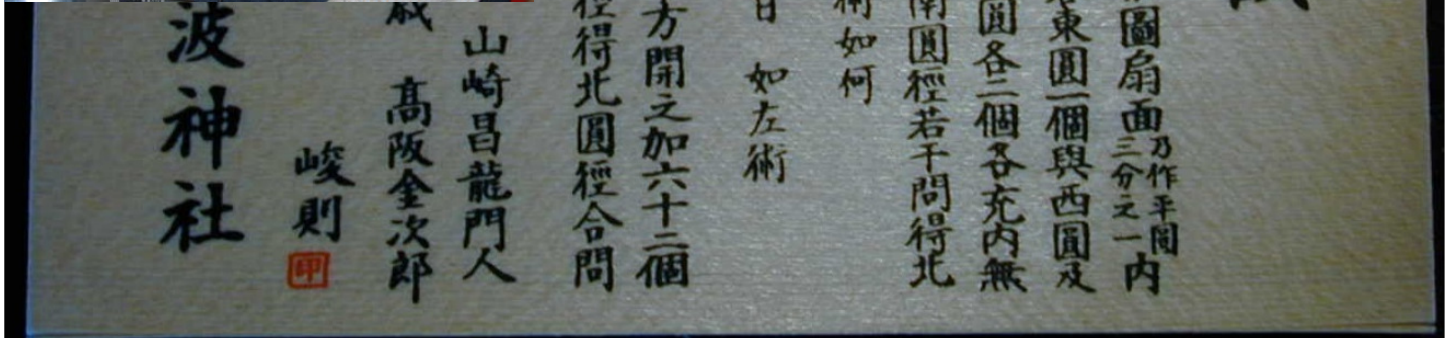 圖扇面乃作平圓三分之一内
東圓一個與西圓及
圓各二個各充内無
南圓徑若干問得北
術如何
曰 如左術
方開之加六十二個
徑得北圓徑合問
山崎昌龍門人
歳 髙阪金次郎
峻則
波神社